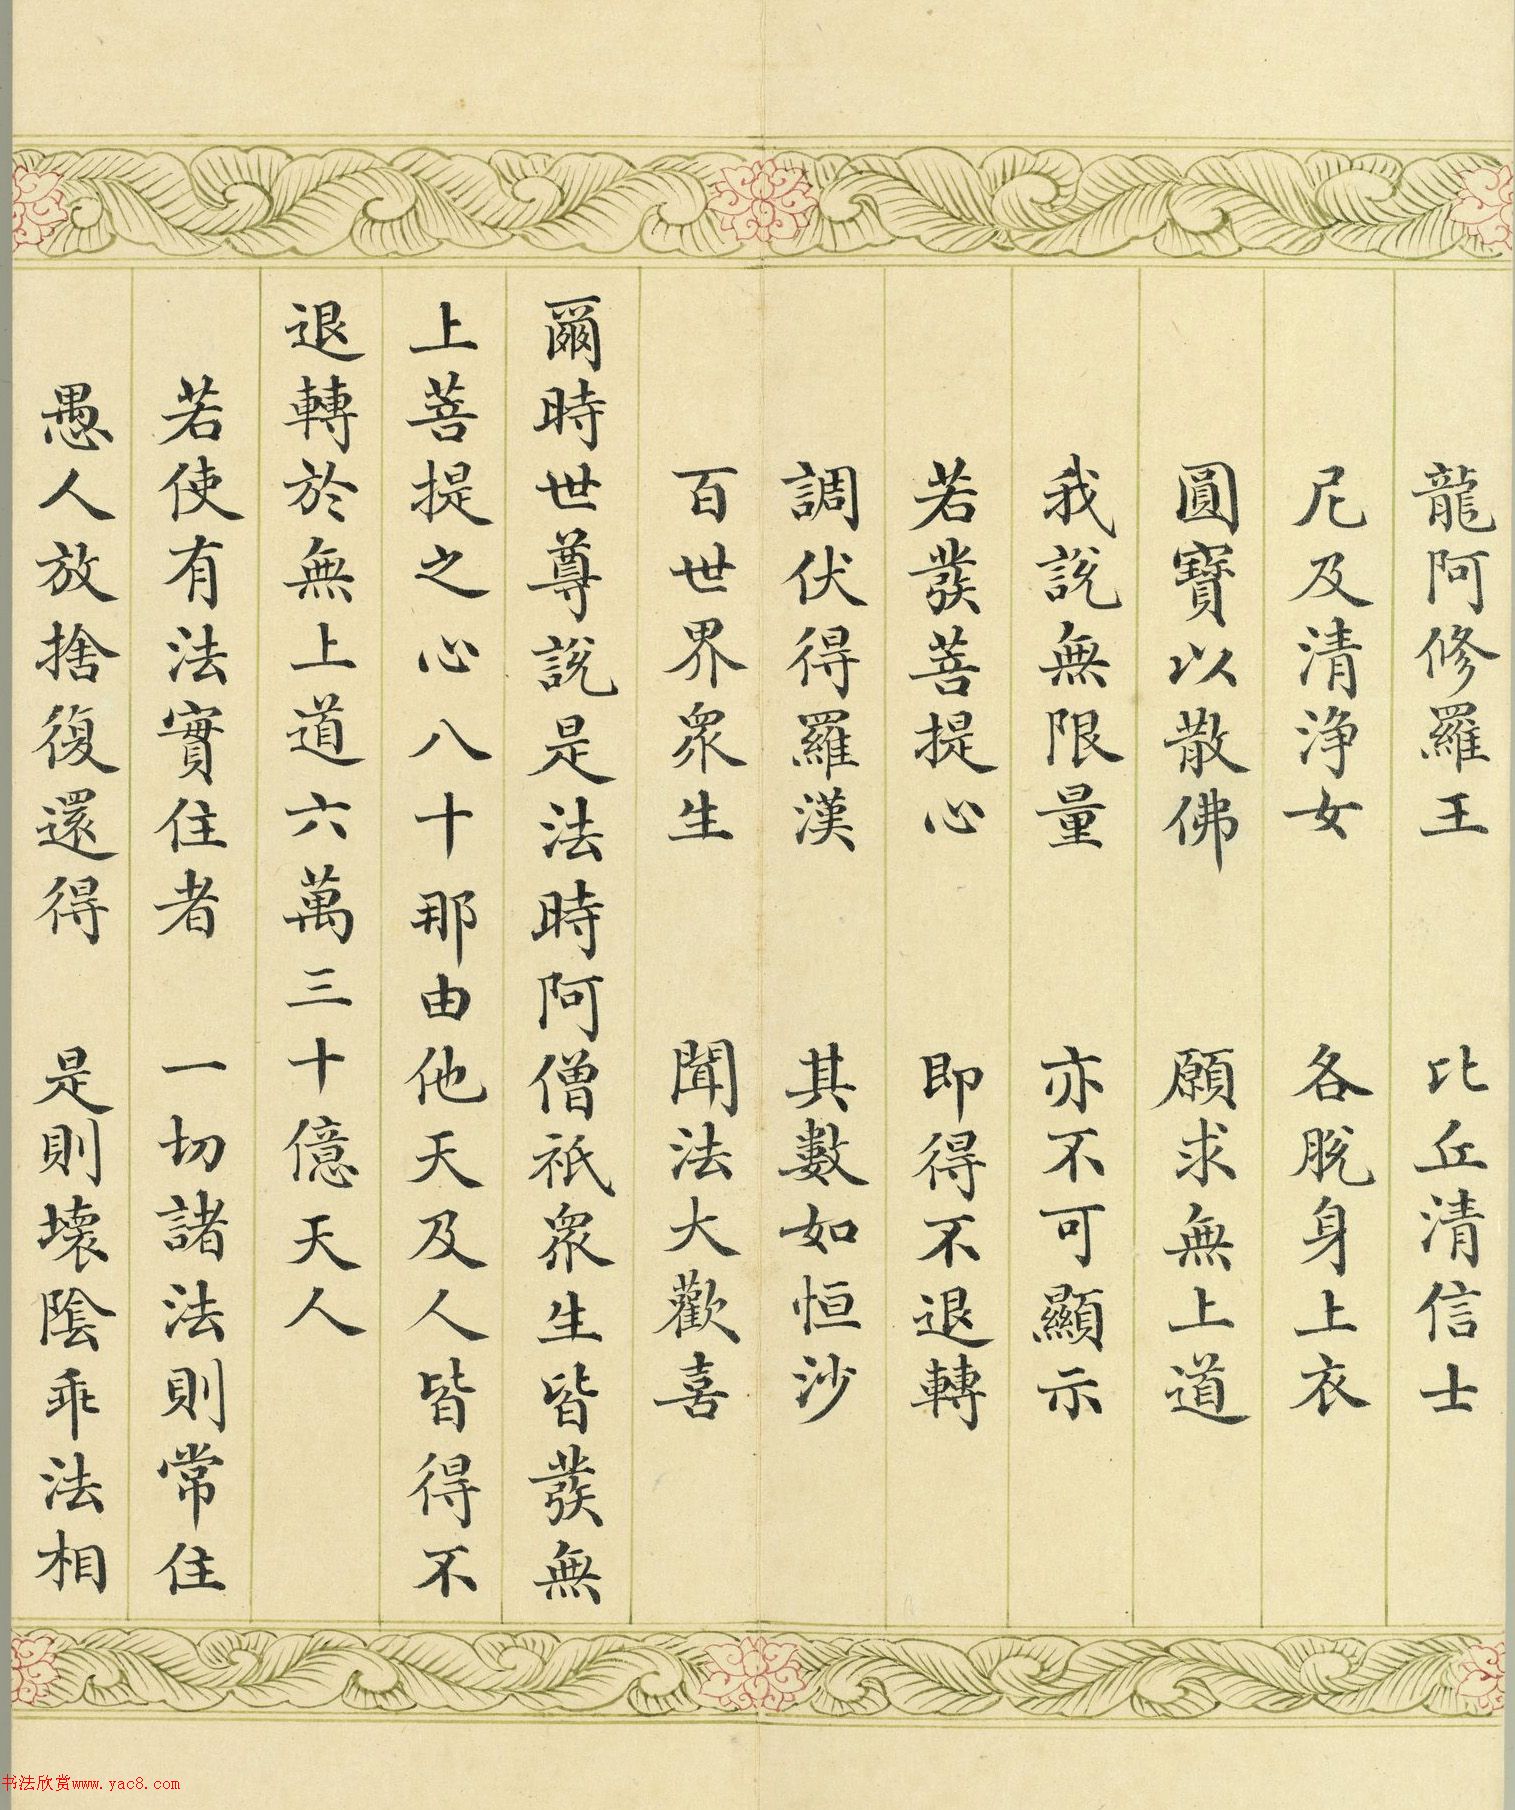 龍阿修羅王　比丘清信士
尼及清淨女　各脫身上衣
圓寶以散佛　願求無上道
我說無限量　亦不可顯示
若發菩提心　即得不退轉
調伏得羅漢　其數如恒沙
百世界眾生　聞法大歡喜
爾時世尊說是法時阿僧祇眾生皆發無
上菩提之心八十那由他天及人皆得不
退轉於無上道六萬三十億天人
若使有法實住者　一切諸法則常住
愚人放捨復還得　是則壞陰乖法相
书法欣赏www.yac8.com